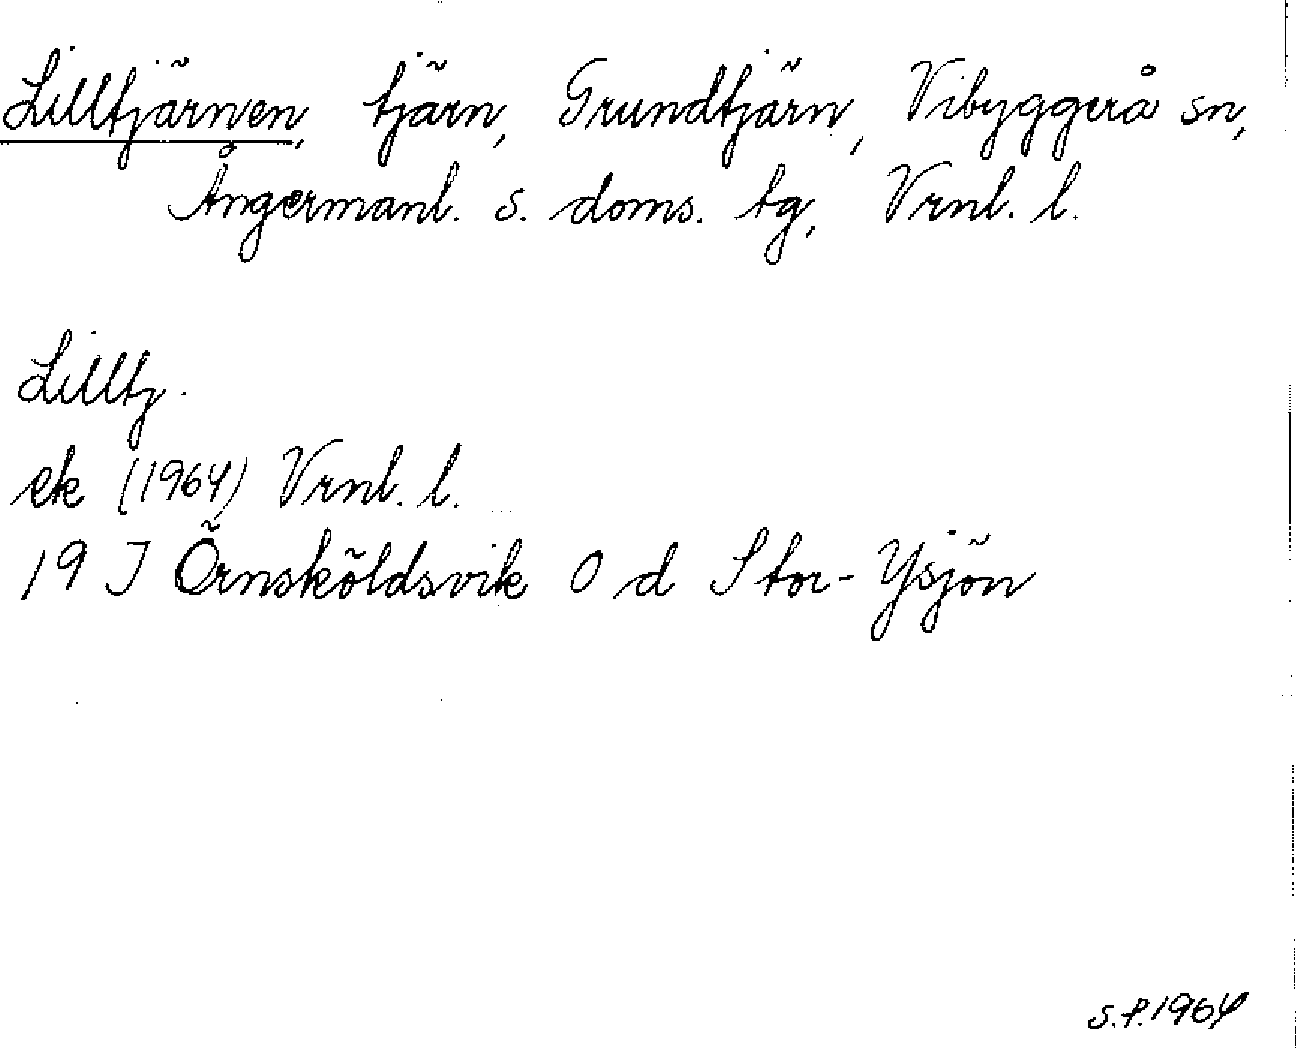 Lilltjärnen, tjärn, Grundtjärn, Vibyggerå sn,
Ångermanl. s. doms. tg, Vrnl. l.
Lilltj.
ek (1964) Vrnl. l.
19 J Örnsköldsvik 0 d Stor-Ysjön
S.F. 1964